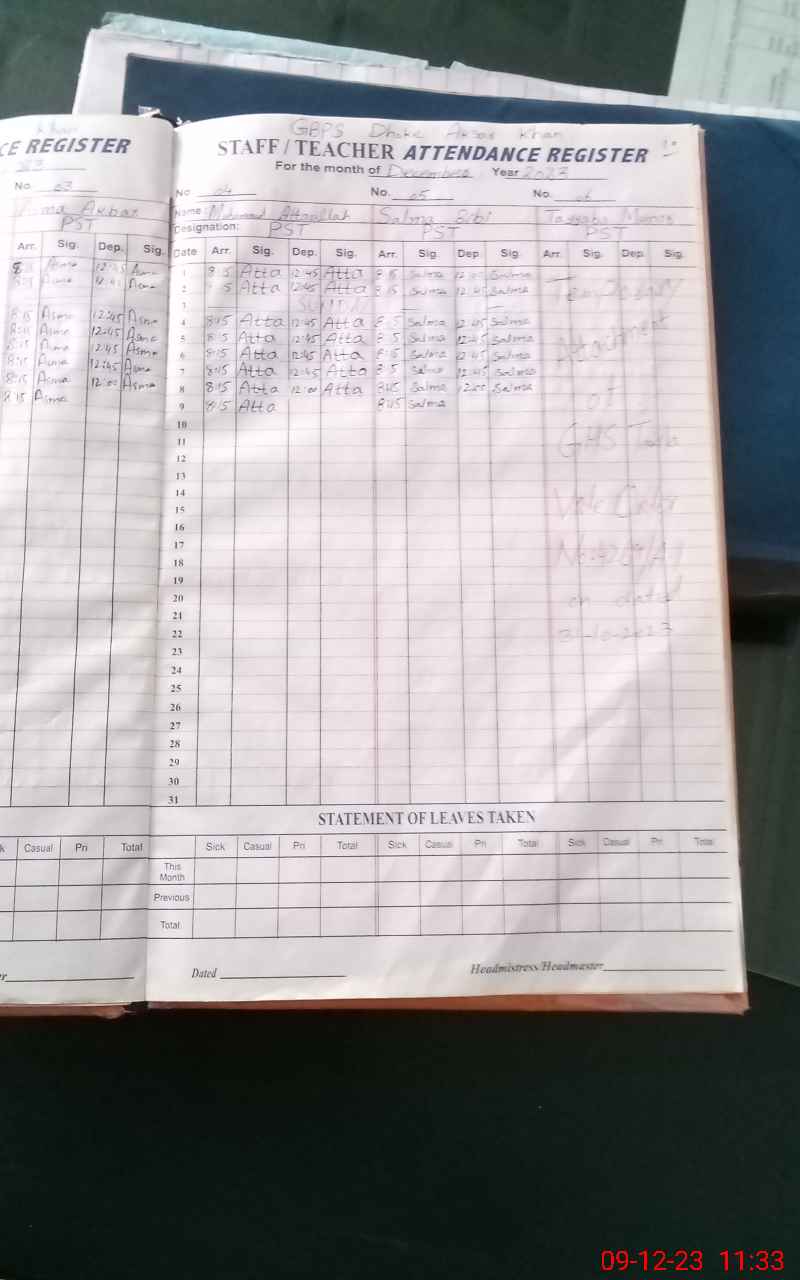 GBPS Dhoke Aksar Khan
CE REGISTER
STAFF / TEACHER ATTENDANCE REGISTER
For the month of December Year 2023
No. 03
No 04 No. 05 No. 06
Akbar
Name: Mohammad Attaullah Salma Bibi Tayyaba
PST
Designation: PST PST PST
Arr. Sig. Dep. Sig.
Date Arr. Sig. Dep. Sig. Arr. Sig. Dep. Sig. Arr. Sig. Dep. Sig.
8:15 Asma 12:45 Asma
8:15 Asma 12:45 Asma
8:15 Asma 12:45 Asma
8:15 Asma 12:45 Asma
8:15 Asma 12:45 Asma
8:15 Asma 12:45 Asma
8:15 Asma 12:00 Asma
8:15 Asma
1 8:15 Atta 12:45 Atta 8:15 Salma 12:45 Salma
2 8:15 Atta 12:45 Atta 8:15 Salma 12:45 Salma
3 SUNDAY
4 8:15 Atta 12:45 Atta 8:15 Salma 12:45 Salma
5 8:15 Atta 12:45 Atta 8:15 Salma 12:45 Salma
6 8:15 Atta 12:45 Atta 8:15 Salma 12:45 Salma
7 8:15 Atta 12:45 Atta 8:15 Salma 12:45 Salma
8 8:15 Atta 12:00 Atta 8:15 Salma 12:00 Salma
9 8:15 Atta 8:15 Salma
10
11
12
13
14
15
16
17
18
19
20
21
22
23
24
25
26
27
28
29
30
31
Temporary
Attachment
GHS
Vide Order
on dated
31-10-2023
STATEMENT OF LEAVES TAKEN
Casual Pri Total
Sick Casual Pri Total Sick Casual Pri Total Sick Casual Pri Total
This
Month
Previous
Total
Dated Headmistress/Headmaster
09-12-23 11:33